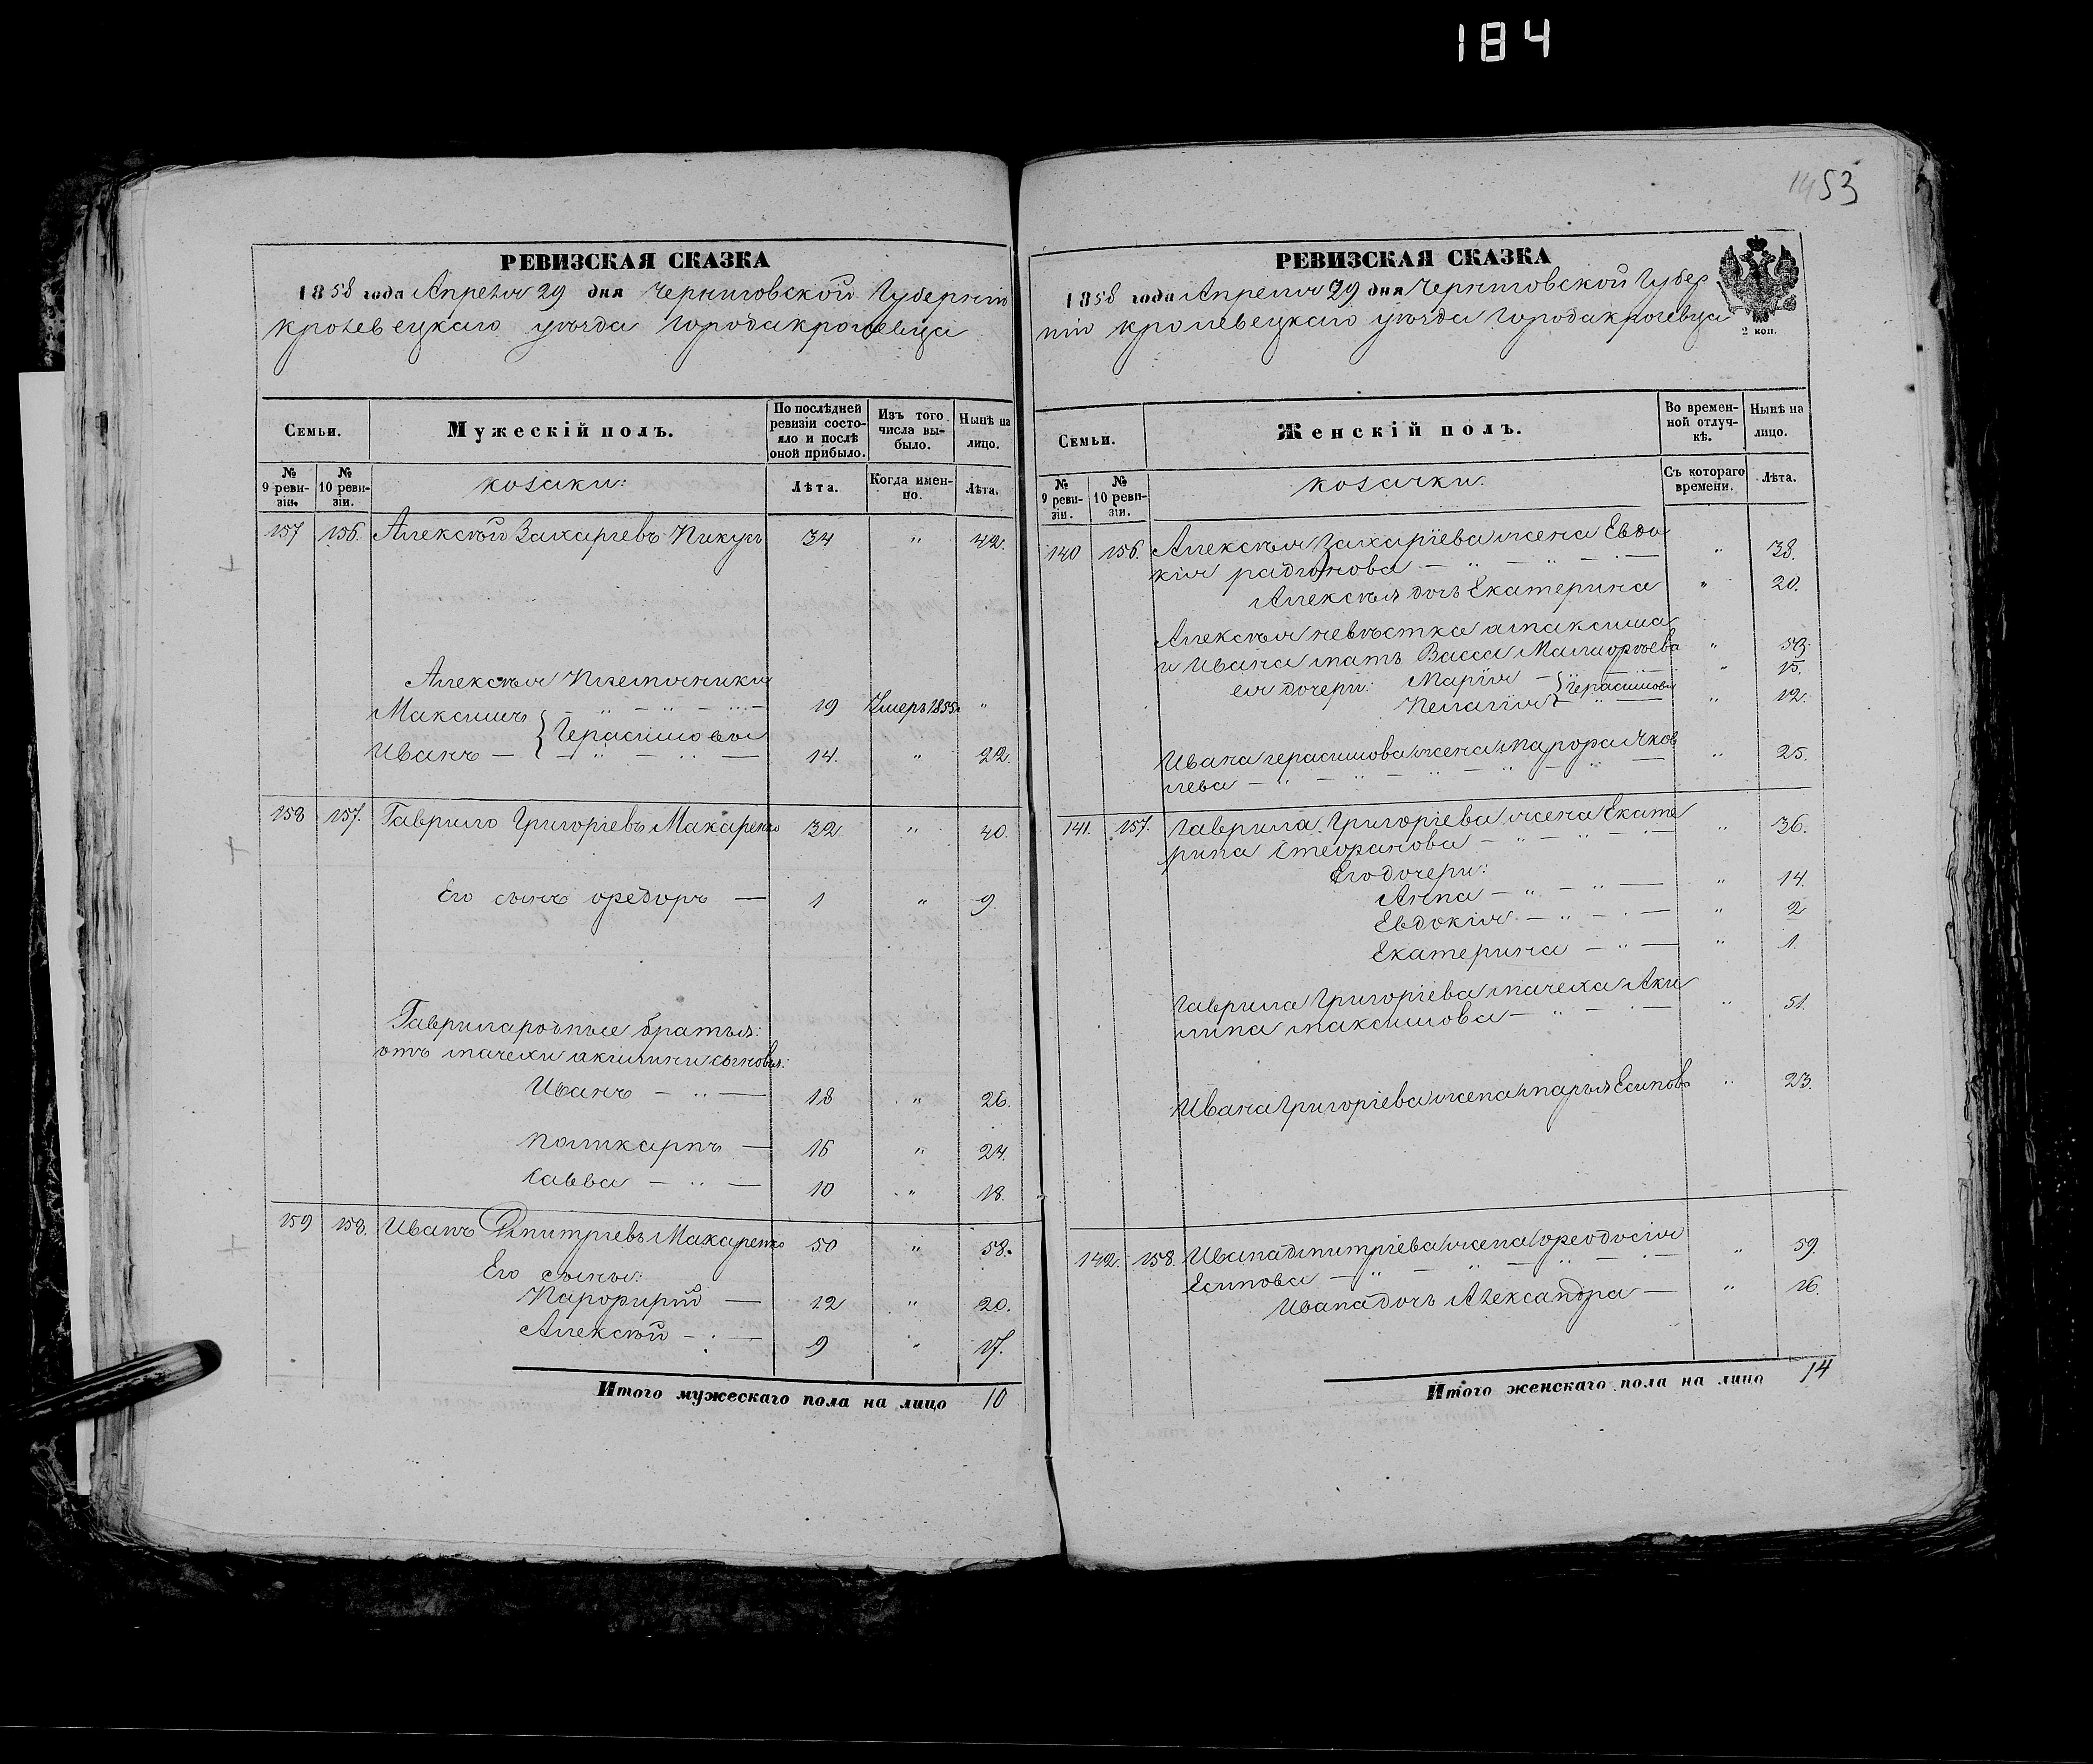 184
1453
РЕВИЗСКАЯ СКАЗКА
1858 года Апреля 29 дня Черниговской Губерніи
Кролевецкаго уѣзда города Кролевца
Семьи.
Мужескій полъ.
По послѣдней ревизіи состояло и послѣ оной прибыло.
Изъ того числа выбыло.
Нынѣ на лицо.
№ 9 ревизіи.
№ 10 ревизіи.
козаки:
Лѣта.
Когда именно.
Лѣта.
157 156. Алексѣй Захаріевъ Пикуль 34 " 42.
Алексѣя племянники
Максимъ - " - " - 19 Умеръ 1855 "
Герасимовы
Иванъ — - " - " — 14. " 22.
158 157. Гаврило Григоріевъ Макаренко 32 " 40.
Его сынъ Федоръ — 1 " 9.
Гаврила родные братья:
отъ мачехи Акилини сыновья:
Иванъ — " — 18 " 26.
Поликарпъ — 16 " 24.
Савва — " — 10 " 18.
159 158. Иванъ Дмитріевъ Макаренко 50 " 58.
Его сыны:
Парфирій — 12 " 20.
Алексѣй — " — 9 " 17.
Итого мужескаго пола на лицо 10
РЕВИЗСКАЯ СКАЗКА
1858 года Апреля 29 дня Черниговской Губер
ніи Кролевецкаго уѣзда города Кролевца
2 коп.
Семьи.
Женскій полъ.
Во временной отлучкѣ.
Нынѣ на лицо.
№ 9 ревизіи.
№ 10 ревизіи.
козачки:
Съ котораго времени.
Лѣта.
140 156. Алексѣя Захаріева жена Евдо
кія Радіонова — " — " — " 38.
Алексѣя дочь Екатерина " 20.
Алексѣя невѣстка а Максима
и Ивана мать Васса Малофѣева "
ея дочери: Марія — " 15.
Герасимовы
Пелагія — " 12.
Ивана Герасимова жена Марфа Яков " 25.
лева — " — " — " — " —
141. 157. Гаврила Григоріева жена Екате
рина Стефанова — " — " — " 36.
Его дочери:
Анна — " — " — " 14.
Евдокія — " — " — " 2
Екатерина — " — " 1.
Гаврила Григоріева мачеха Аки
лина Максимова — " — " 51.
Ивана Григоріева жена Марья Есипова " 23.
142. 158. Ивана Дмитріева жена Феодосія
Есипова — " — " — " — " 59.
Ивана дочь Александра — " 16.
Итого женскаго пола на лицо 14